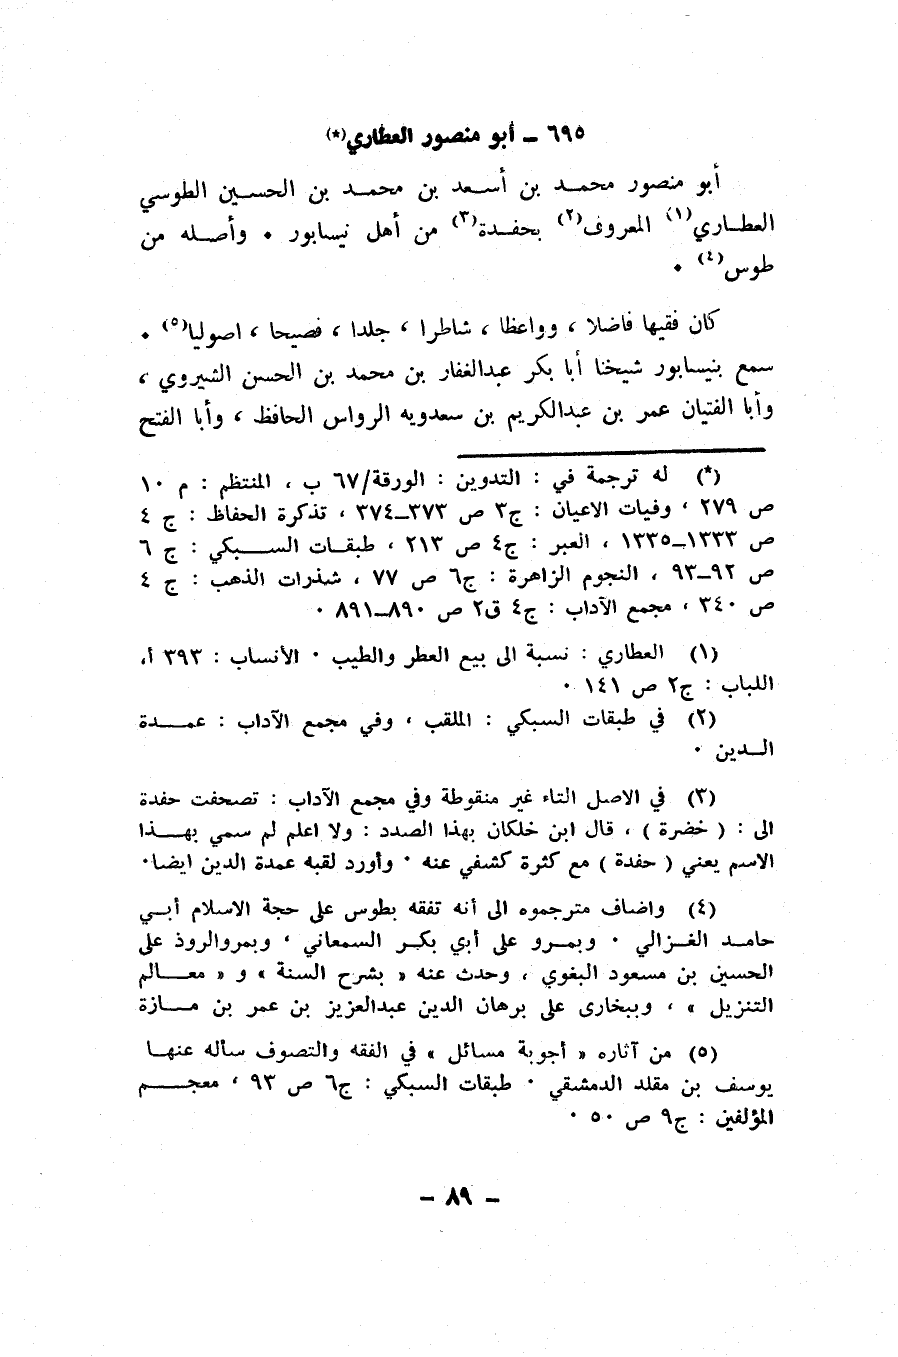 ٦٩٥ ــ أبو منصور العطاري(*)
أبو منصور محمـد بن أسـعد بن محمـد بن الحسـين الطوسي
العطـاري(١) المعروف(٢) بحفـدة(٣) من أهل نيسابور ٠ وأصـله من
طوس(٤) ٠
كان فقيها فاضلا ، وواعظا ، شاطرا ، جلدا ، فصيحا ، اصوليا(٥) ٠
سمع بنيسابور شيخنا أبا بكر عبدالغفار بن محمد بن الحسن الشيروي ،
وأبا الفتيان عمر بن عبدالكريم بن سعدويه الرواس الحافظ ، وأبا الفتح
(*) له ترجمة في : التدوين : الورقة/٦٧ ب ، المنتظم : م ١٠
ص ٢٧٩ ، وفيات الاعيان : ج٣ ص ٣٧٣ــ٣٧٤ ، تذكرة الحفاظ : ج ٤
ص ١٣٣٣ــ١٣٣٥ ، العبر : ج٤ ص ٢١٣ ، طبقـات السـبكي : ج ٦
ص ٩٢ــ٩٣ ، النجوم الزاهرة : ج٦ ص ٧٧ ، شذرات الذهب : ج ٤
ص ٣٤٠ ، مجمع الآداب : ج٤ ق٢ ص ٨٩٠ــ٨٩١ ٠
(١) العطاري : نسبة الى بيع العطر والطيب ٠ الأنساب : ٣٩٣ أ،
اللباب : ج٢ ص ١٤١ ٠
(٢) في طبقات السبكي : الملقب ، وفي مجمع الآداب : عمـــدة
الـدين ٠
(٣) في الاصل التاء غير منقوطة وفي مجمع الآداب : تصحفت حفدة
الى : ( خضرة ) ، قال ابن خلكان بهذا الصدد : ولا اعلم لم سمي بهـــذا
الاسم يعني ( حفدة ) مع كثرة كشفي عنه ٠ وأورد لقبه عمدة الدين ايضا٠
(٤) واضاف مترجموه الى أنه تفقه بطوس على حجة الاسلام أبـي
حامـد الغـزالي ٠ وبمـرو على أبي بكـر السمعاني ، وبمروالروذ على
الحسين بن مسعود البغوي ، وحدث عنه « بشرح السنة » و « معـالم
التنزيل » ، وببخارى على برهان الدين عبدالعزيز بن عمر بن مـازة
(٥) من آثاره « أجوبة مسائل » في الفقه والتصوف سأله عنهـا
يوسف بن مقلد الدمشقي ٠ طبقات السبكي : ج٦ ص ٩٣ ، معجـــم
المؤلفين : ج٩ ص ٥٠ ٠
ــ ٨٩ ــ